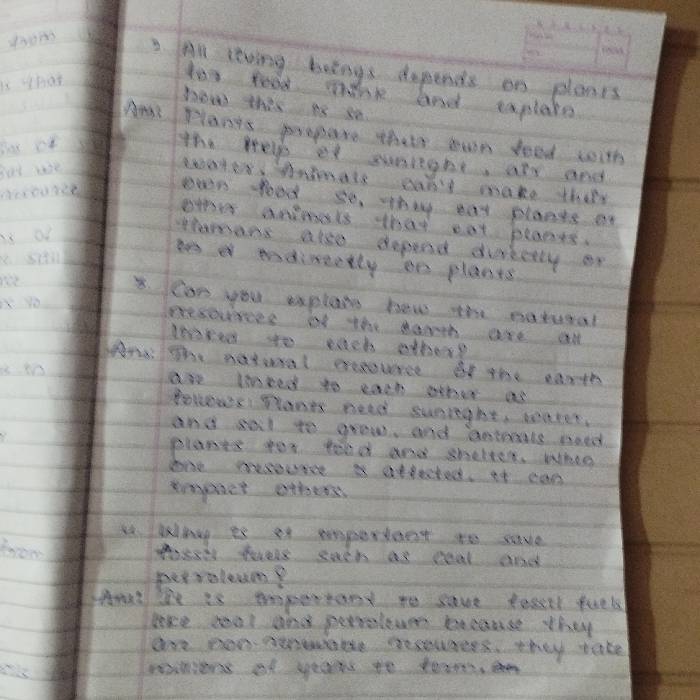 from
All living beings depends on plants
for food Think and explain
how this is so
Ans: Plants prepare their own food with
the help of sunlight, air and
water. Animals can't make their
own food so, they eat plants or
other animals that eat plants.
Humans also depend directly or
indirectly on plants
8. Can you explain how the natural
resources of the earth are all
linked to each other?
Ans: The natural resource of the earth
are linked to each other as
follows: Plants need sunlight, water,
and soil to grow, and animals need
plants for food and shelter. When
one resource is affected, it can
impact others.
Why is it important to save
fossil fuels such as coal and
petroleum?
Ans: It is important to save fossil fuels
like coal and petroleum because they
are non-renewable resources. they take
millions of years to form.